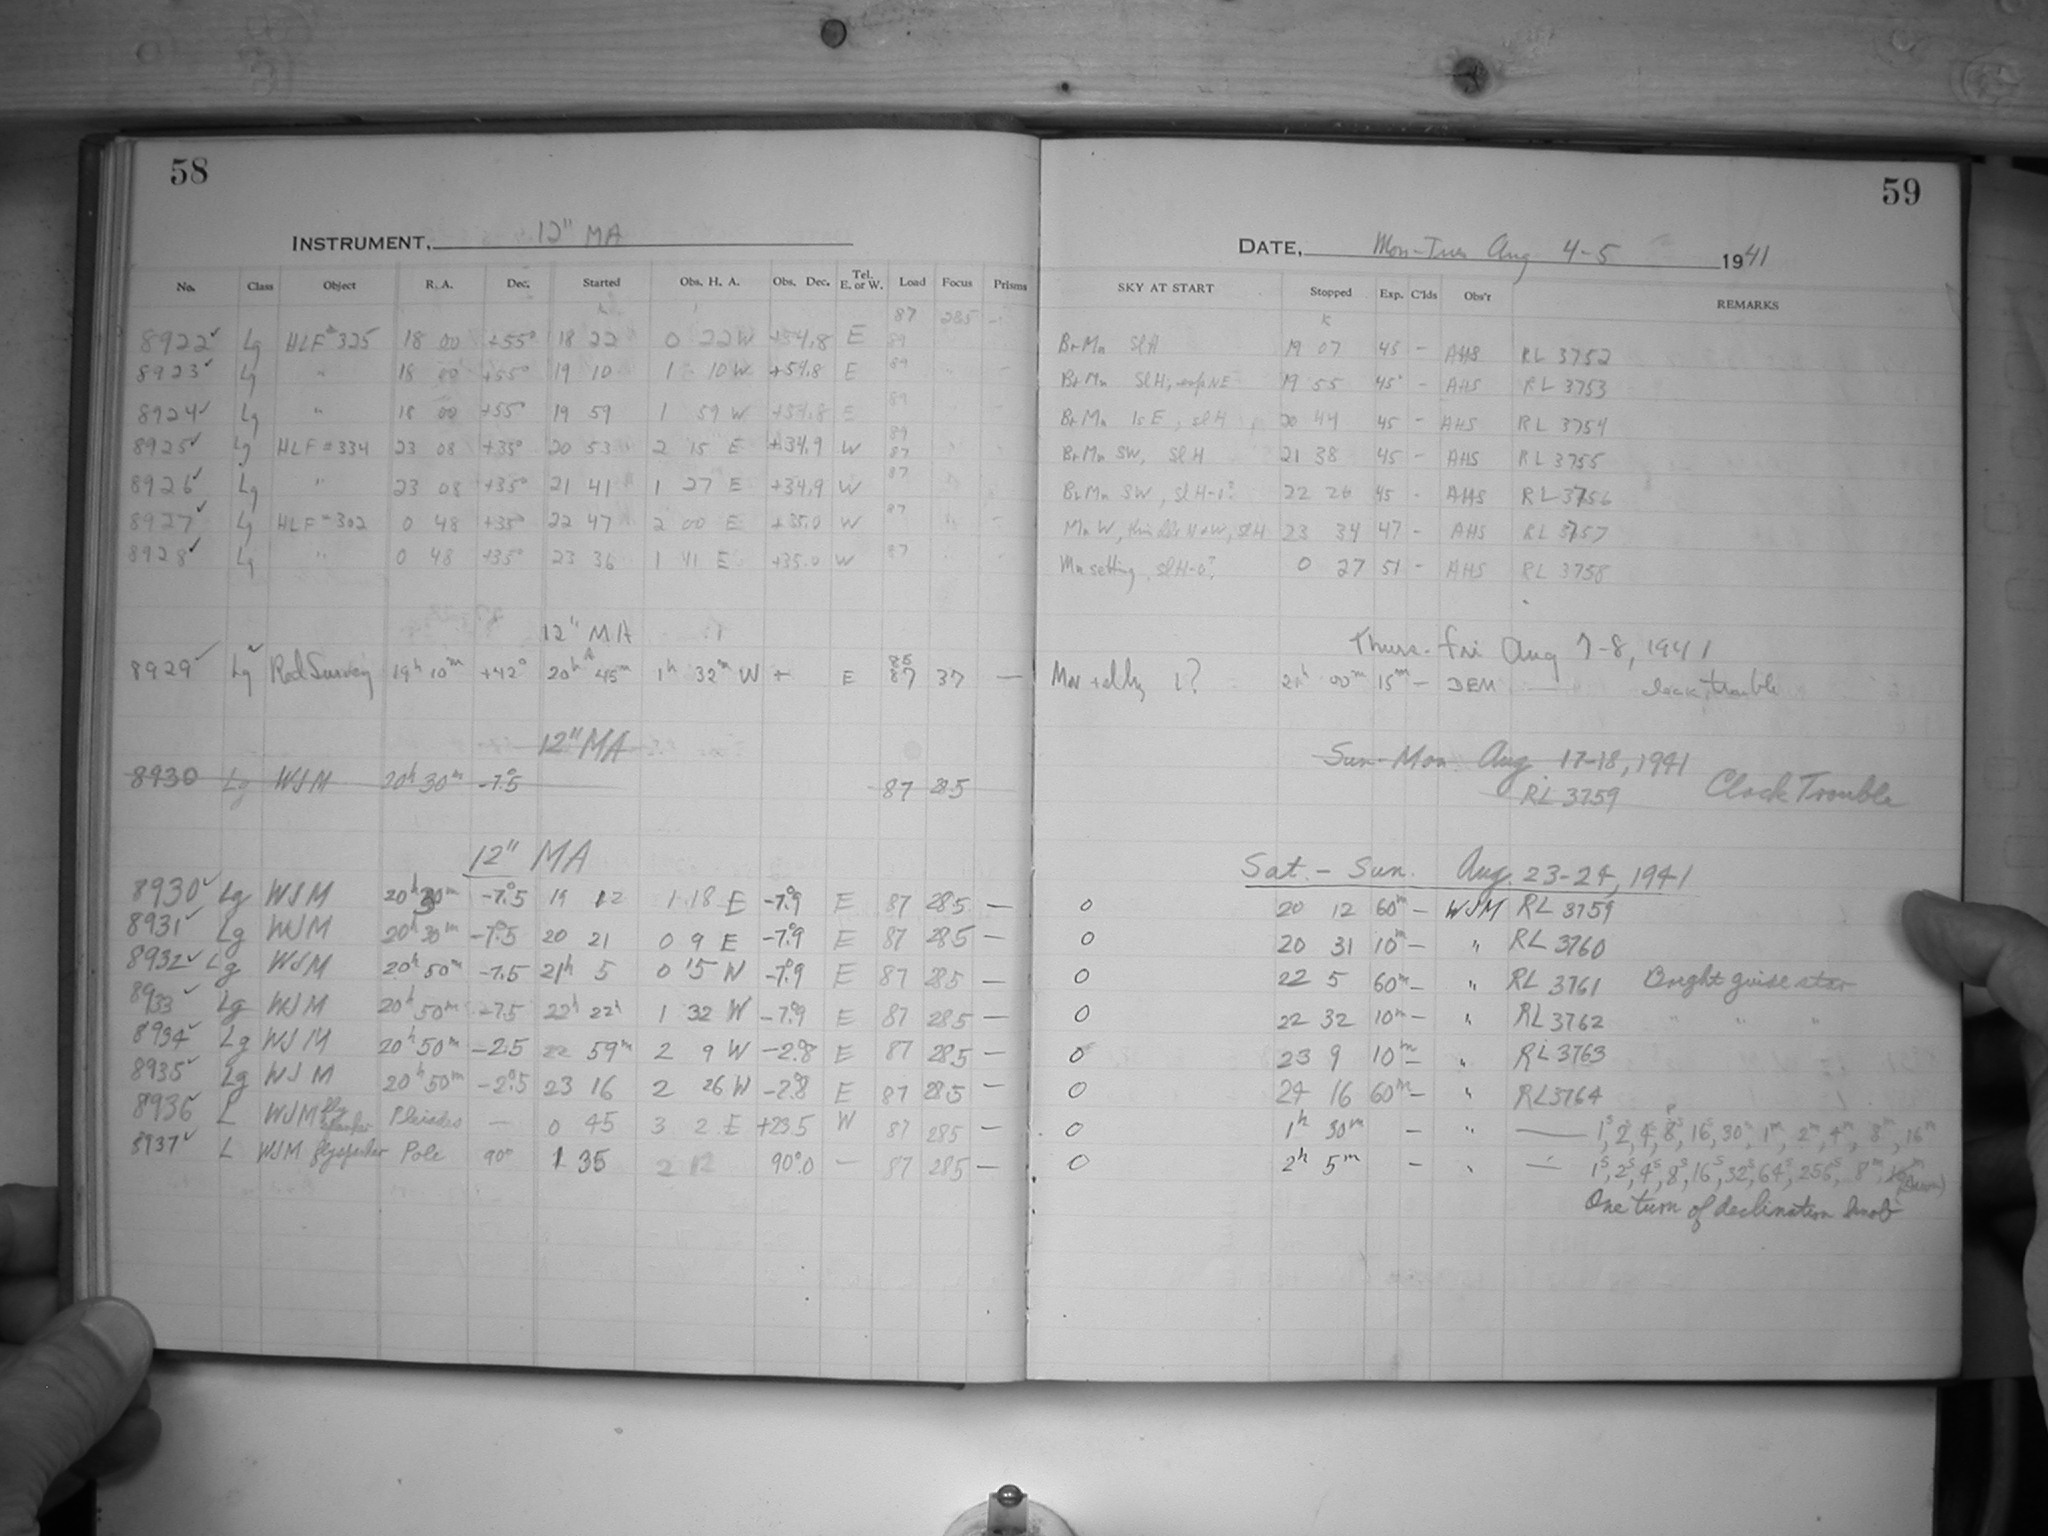 58
INSTRUMENT, 12" MA
No. Class Object R. A. Dec. Started Obs. H. A. Obs. Dec. Tel. E. or W. Load Focus Prisms
87 285 -
8922✓ Lg HLF#325 18 00 +55° 18 22 0 22 W +54.8 E 89
8923✓ Lg " 18 00 +55° 19 10 1 10 W +54.8 E 89
8924✓ Lg " 18 00 +55° 19 59 1 59 W +54.8 E 89
8925✓ Lg HLF#334 23 08 +35° 20 53 2 15 E +34.9 W 89 87
8926✓ Lg " 23 08 +35° 21 41 1 27 E +34.9 W 87
8927✓ Lg HLF#302 0 48 +35° 22 47 2 00 E +35.0 W 87
8928✓ Lg " 0 48 +35° 23 36 1 41 E +35.0 W 87
12" MA
8929✓ Lg Red Survey 19h 10m +42° 20h 45m 1h 32m W E 87 37 —
12" MA
8930 Lg WJM 20h 30m -7.°5 87 285
12" MA
8930✓ Lg WJM 20h 30m -7.°5 19 12 1 18 E -7.°9 E 87 285 —
8931✓ Lg WJM 20h 30m -7.°5 20 21 0 9 E -7.°9 E 87 285 —
8932✓ Lg WJM 20h 50m -7.5 21h 5 0 15 W -7.°9 E 87 285 —
8933✓ Lg WJM 20h 50m -7.5 22h 22 1 32 W -7.°9 E 87 285 —
8934✓ Lg WJM 20h 50m -2.5 22 59m 2 9 W -2.°8 E 87 285 —
8935✓ Lg WJM 20h 50m -2.°5 23 16 2 26 W -2.°8 E 87 285 —
8936✓ L WJM fly spanker Pleiades — 0 45 3 2 E +23.5 W 87 285 —
8937✓ L WJM flyspanker Pole 90° 1 35 90.°0 — 87 285 —
59
DATE, Mon-Tues Aug 4-5 1941
SKY AT START Stopped Exp. C'lds Obs'r REMARKS
BrMn SlH 19 07 45 - AHS RL 3752
BrMn SlH, NE 19 55 45 - AHS RL 3753
BrMn E, slH 20 44 45 - AHS RL 3754
BrMn SW, SlH 21 38 45 - AHS RL 3755
BrMn SW, slH-0? 22 26 45 - AHS RL 3756
Mn W, N+W, slH 23 34 47 - AHS RL 3757
Mn setting, slH-0? 0 27 51 - AHS RL 3758
Thurs-Fri Aug 7-8, 1941
21h 00m 15m - DEM — clock trouble
Sun-Mon Aug 17-18, 1941
RL 3759 Clock Trouble
Sat. - Sun. Aug. 23-24, 1941
0 20 12 60m - WJM RL 3759
0 20 31 10m - " RL 3760
0 22 5 60m - " RL 3761 Bright guide star
0 22 32 10m - " RL 3762 " " "
0 23 9 10m - " RL 3763
0 24 16 60m - " RL 3764
0 1h 30m - " — 1s, 2s, 4s, 8s, 16s, 30s, 1m, 2m, 4m, 8m, 16m
0 2h 5m - " — 1s, 2s, 4s, 8s, 16s, 32s, 64s, 256s, 8m, 16m (Dawn)
One turn of declination knob